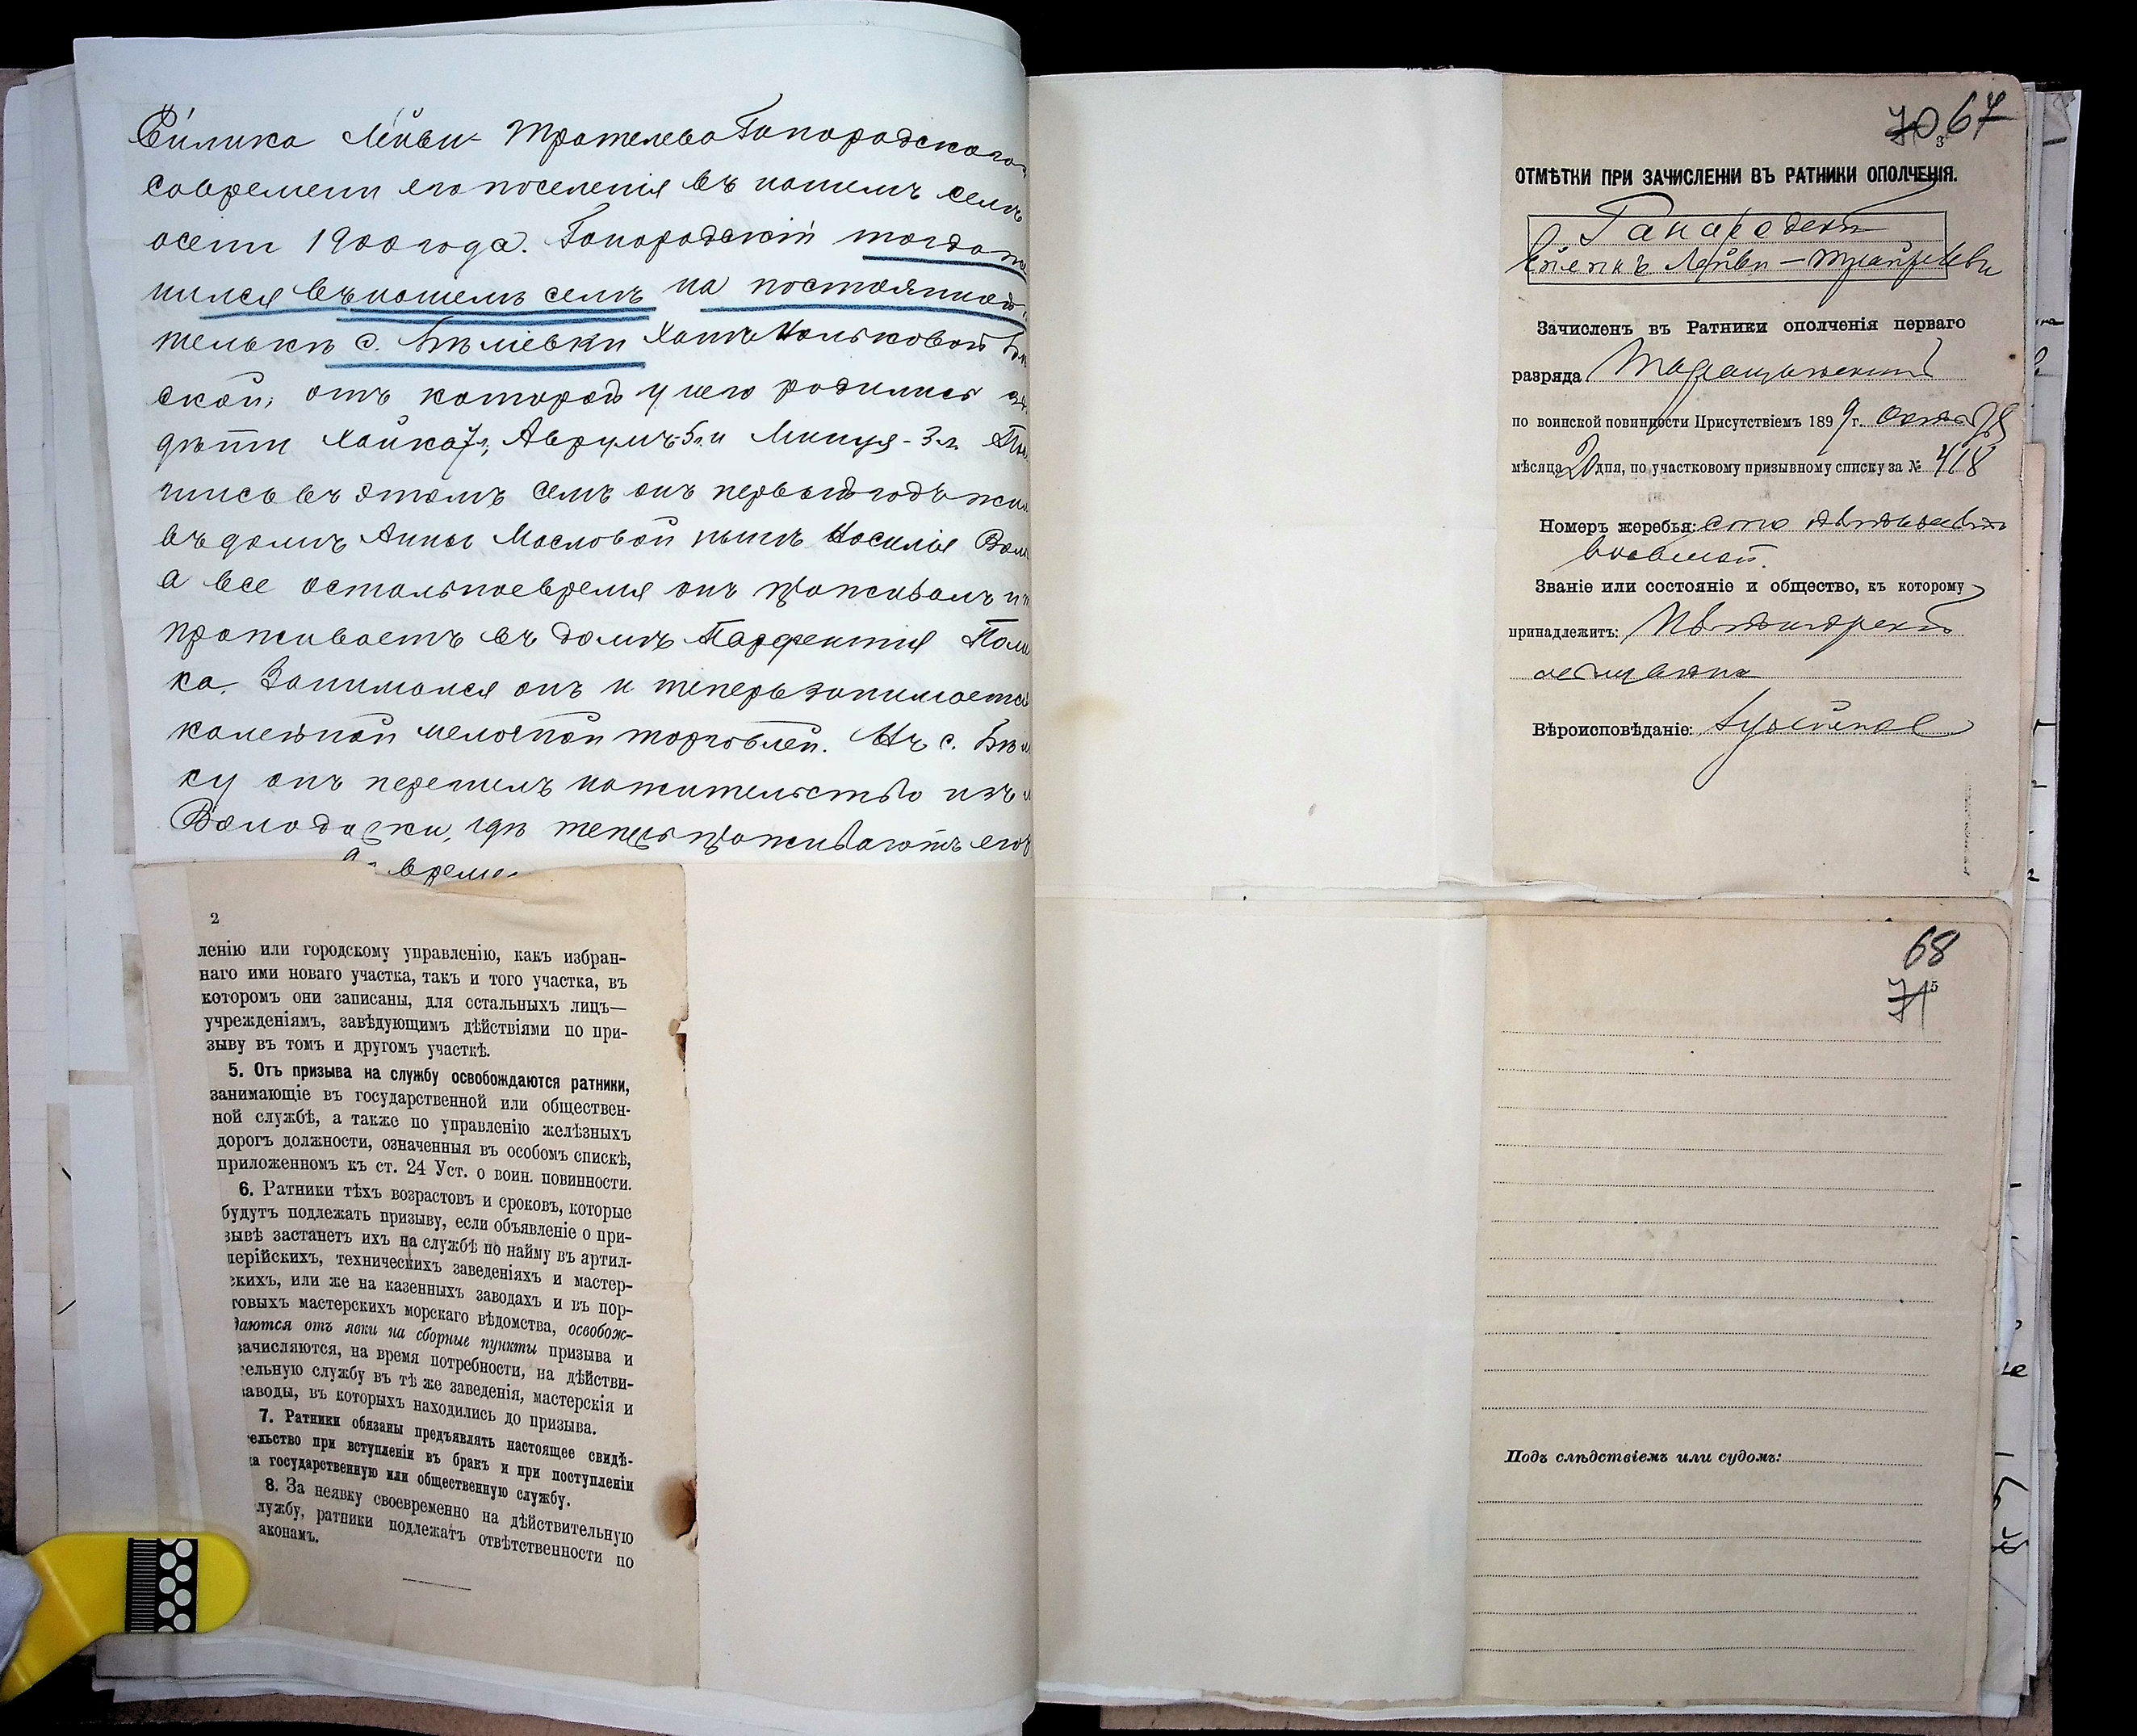 Лейви-
современи его поселенія въ нашемъ селѣ
осени 1900 года. Гапородскій тогда же
нился въ нашемъ селѣ на постоянной
тельки с. Бѣліевки
ской, отъ которой у него родились
дѣти Хайка 7 л., Аврумъ-5 л. и - 3 л.
въ этомъ селѣ онъ первый годъ жи
въ домѣ Анны Масловой нынѣ
а все остальное время онъ проживалъ и
проживаетъ въ домѣ Парфентія
ка. Занимался онъ и теперь занимается
мелочной торговлей. Въ с. Бѣл
ку онъ перешелъ на жительство изъ
Володарки, гдѣ теперь проживаютъ его
време
2
ленію или городскому управленію, какъ избран-
наго ими новаго участка, такъ и того участка, въ
которомъ они записаны, для остальныхъ лицъ—
учрежденіямъ, завѣдующимъ дѣйствіями по при-
зыву въ томъ и другомъ участкѣ.
5. Отъ призыва на службу освобождаются ратники,
занимающіе въ государственной или обществен-
ной службѣ, а также по управленію желѣзныхъ
дорогъ должности, означенныя въ особомъ спискѣ,
приложенномъ къ ст. 24 Уст. о воин. повинности.
6. Ратники тѣхъ возрастовъ и сроковъ, которые
будутъ подлежать призыву, если объявленіе о при-
зывѣ застанетъ ихъ на службѣ по найму въ артил-
лерійскихъ, техническихъ заведеніяхъ и мастер-
скихъ, или же на казенныхъ заводахъ и въ пор-
товыхъ мастерскихъ морскаго вѣдомства, освобож-
даются отъ явки на сборные пункты призыва и
зачисляются, на время потребности, на дѣйстви-
тельную службу въ тѣ же заведенія, мастерскія и
заводы, въ которыхъ находились до призыва.
7. Ратники обязаны предъявлять настоящее свидѣ-
ельство при вступленіи въ бракъ и при поступленіи
а государственную или общественную службу.
8. За неявку своевременно на дѣйствительную
лужбу, ратники подлежатъ отвѣтственности по
аконамъ.
70 67
3
ОТМѢТКИ ПРИ ЗАЧИСЛЕНІИ ВЪ РАТНИКИ ОПОЛЧЕНІЯ.
Гапородскій
Лейви-
Зачисленъ въ Ратники ополченія перваго
разряда Таращанскимъ
по воинской повинности Присутствіемъ 1899 г. октября
мѣсяца 20 дня, по участковому призывному списку за № 418
Номеръ жеребья: сто девяносто
восьмой.
Званіе или состояніе и общество, къ которому
принадлежитъ:
мѣщанинъ
Вѣроисповѣданіе: Іудейское
68
71 5
Подъ слѣдствіемъ или судомъ: